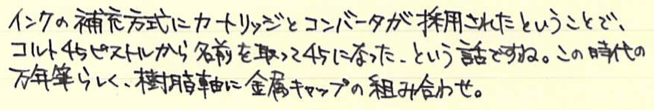 インクの補充方式にカートリッジとコンバータが採用されたということで、
コルト45ピストルから名前を取って45になった、という話ですね。この時代の
万年筆らしく、樹脂軸に金属キャップの組み合わせ。